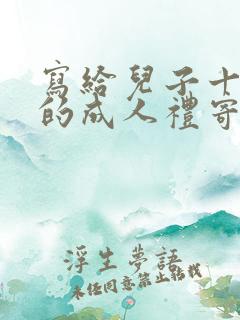 寫給兒子十
的成人禮寄
浮生夢語
未經同意禁止轉載